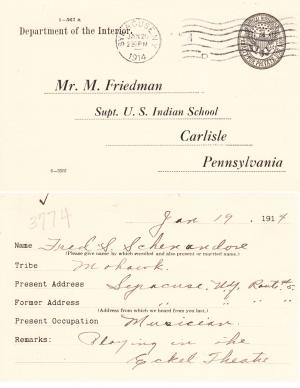 1-567 a
Department of the Interior.
SYRACUSE, N.Y.
JAN 20
1914
Mr. M. Friedman
Supt. U. S. Indian School
Carlisle
Pennsylvania
3774
Jan 19, 1914
Name Fred S. Schenandore
(Please give name by which enrolled and also present or married name.)
Tribe Mohawk.
Present Address Syracuse, N.Y. Route #5.
Former Address " " " "
(Address from which we heard from you last.)
Present Occupation Musician.
Remarks: Playing in the
Eckel Theatre